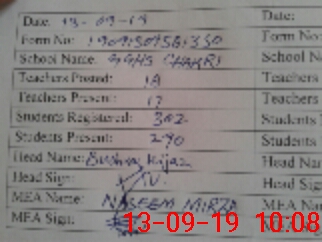 Date: 13-09-19 Date:
Form No: Form No:
School Name: GGHS CHAKRI School N
Teachers Posted: 18 Teachers
Teachers Present: 17 Teachers
Students Registered: 302 Students
Students Present: 290 Students
Head Name: Bushra Head Nam
Head Sign: Head Sig
MEA Name: NASEEM MIRZA MEA Na
MEA Sign: MEA Sig
13-09-19 10:08